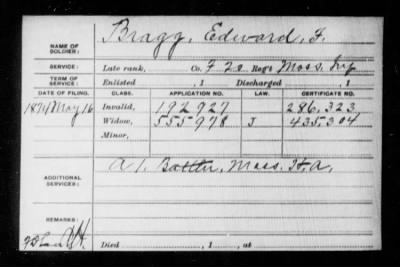 NAME OF SOLDIER: Bragg, Edward, F.
SERVICE: Late rank, Co. F 20 Reg't Mass. Inf
TERM OF SERVICE: Enlisted , 1 Discharged , 1
DATE OF FILING. CLASS. APPLICATION NO. LAW. CERTIFICATE NO.
1874 May 16 Invalid, 192.927 286,323
Widow, 555978 J 435304
Minor,
ADDITIONAL SERVICES: A 1. Batten, Mass. H.A.
REMARKS:
Died , 1 , at